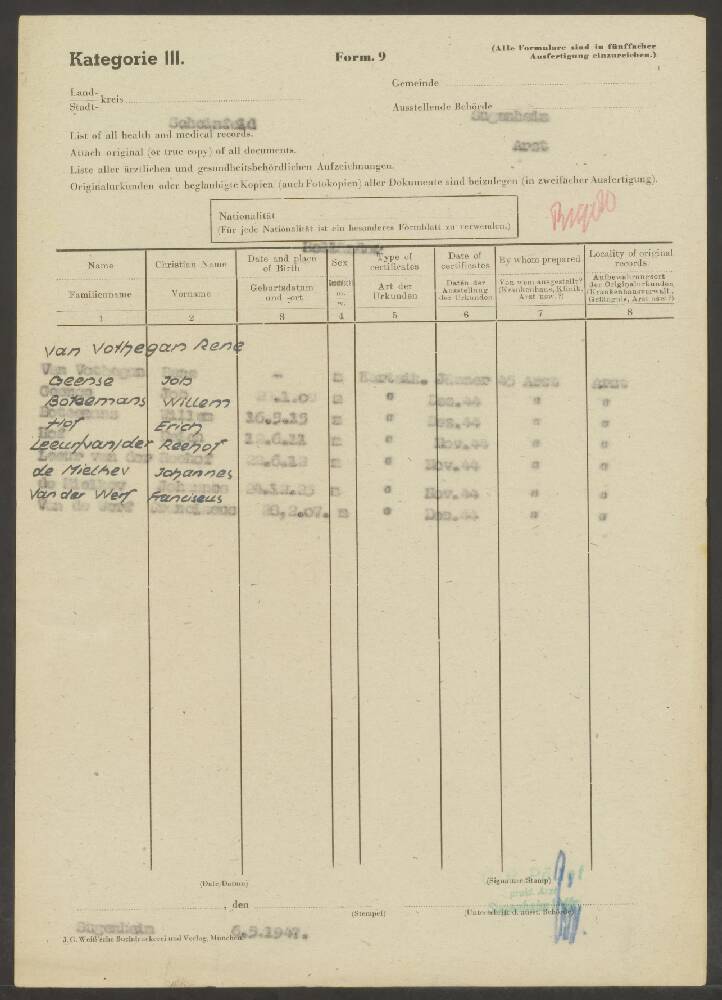 Kategorie III.
Form. 9
(Alle Formulare sind in fünffacher
Ausfertigung einzureichen.)
Land-
Stadt-
kreis
Scheinfeld
Gemeinde
Ausstellende Behörde
Sugenheim
Arzt
List of all health and medical records.
Attach original (or true copy) of all documents.
Liste aller ärztlichen und gesundheitsbehördlichen Aufzeichnungen.
Originalurkunden oder beglaubigte Kopien (auch Fotokopien) aller Dokumente sind beizulegen (in zweifacher Ausfertigung).
Nationalität
(Für jede Nationalität ist ein besonderes Formblatt zu verwenden.)
Name
Christian Name
Date and place of Birth
Sex
Type of certificates
Date of certificates
By whom prepared
Locality of original records
Familienname
Vorname
Geburtsdatum und -ort
Geschlecht m. w.
Art der Urkunden
Daten der Ausstellung der Urkunden
Von wem ausgestellt? (Krankenhaus, Klinik, Arzt usw.?)
Aufbewahrungsort der Originalurkunden (Krankenhausverwalt., Gefängnis, Arzt usw.?)
1 2 3 4 5 6 7 8
Van Vothegan Rene
Van Vothegan Rene - m Karteik. Jänner 45 Arzt Arzt
Geense Job
m " Dez.44 " "
Botermans Willem
Botermans Willem 16.5.15 m " Dez.44 " "
Hof Erich
Hof 12.6.21 m " Nov.44 " "
Leeur/van/der Reehof
Leeur van der Reehof 22.6.12 m " Nov.44 " "
de Mielhev Johannes
de Mielhev Johannes m " Nov.44 " "
Van der Werf Franciscus
Van de Werf Franciscus 28.2.07. m " Dez.44 " "
(Date/Datum)
(Signature/Stamp)
, den
(Stempel)
(Unterschrift d. ausst. Behörde)
Sugenheim 6.5.1947.
J. G. Weiß'sche Buchdruckerei und Verlag, München